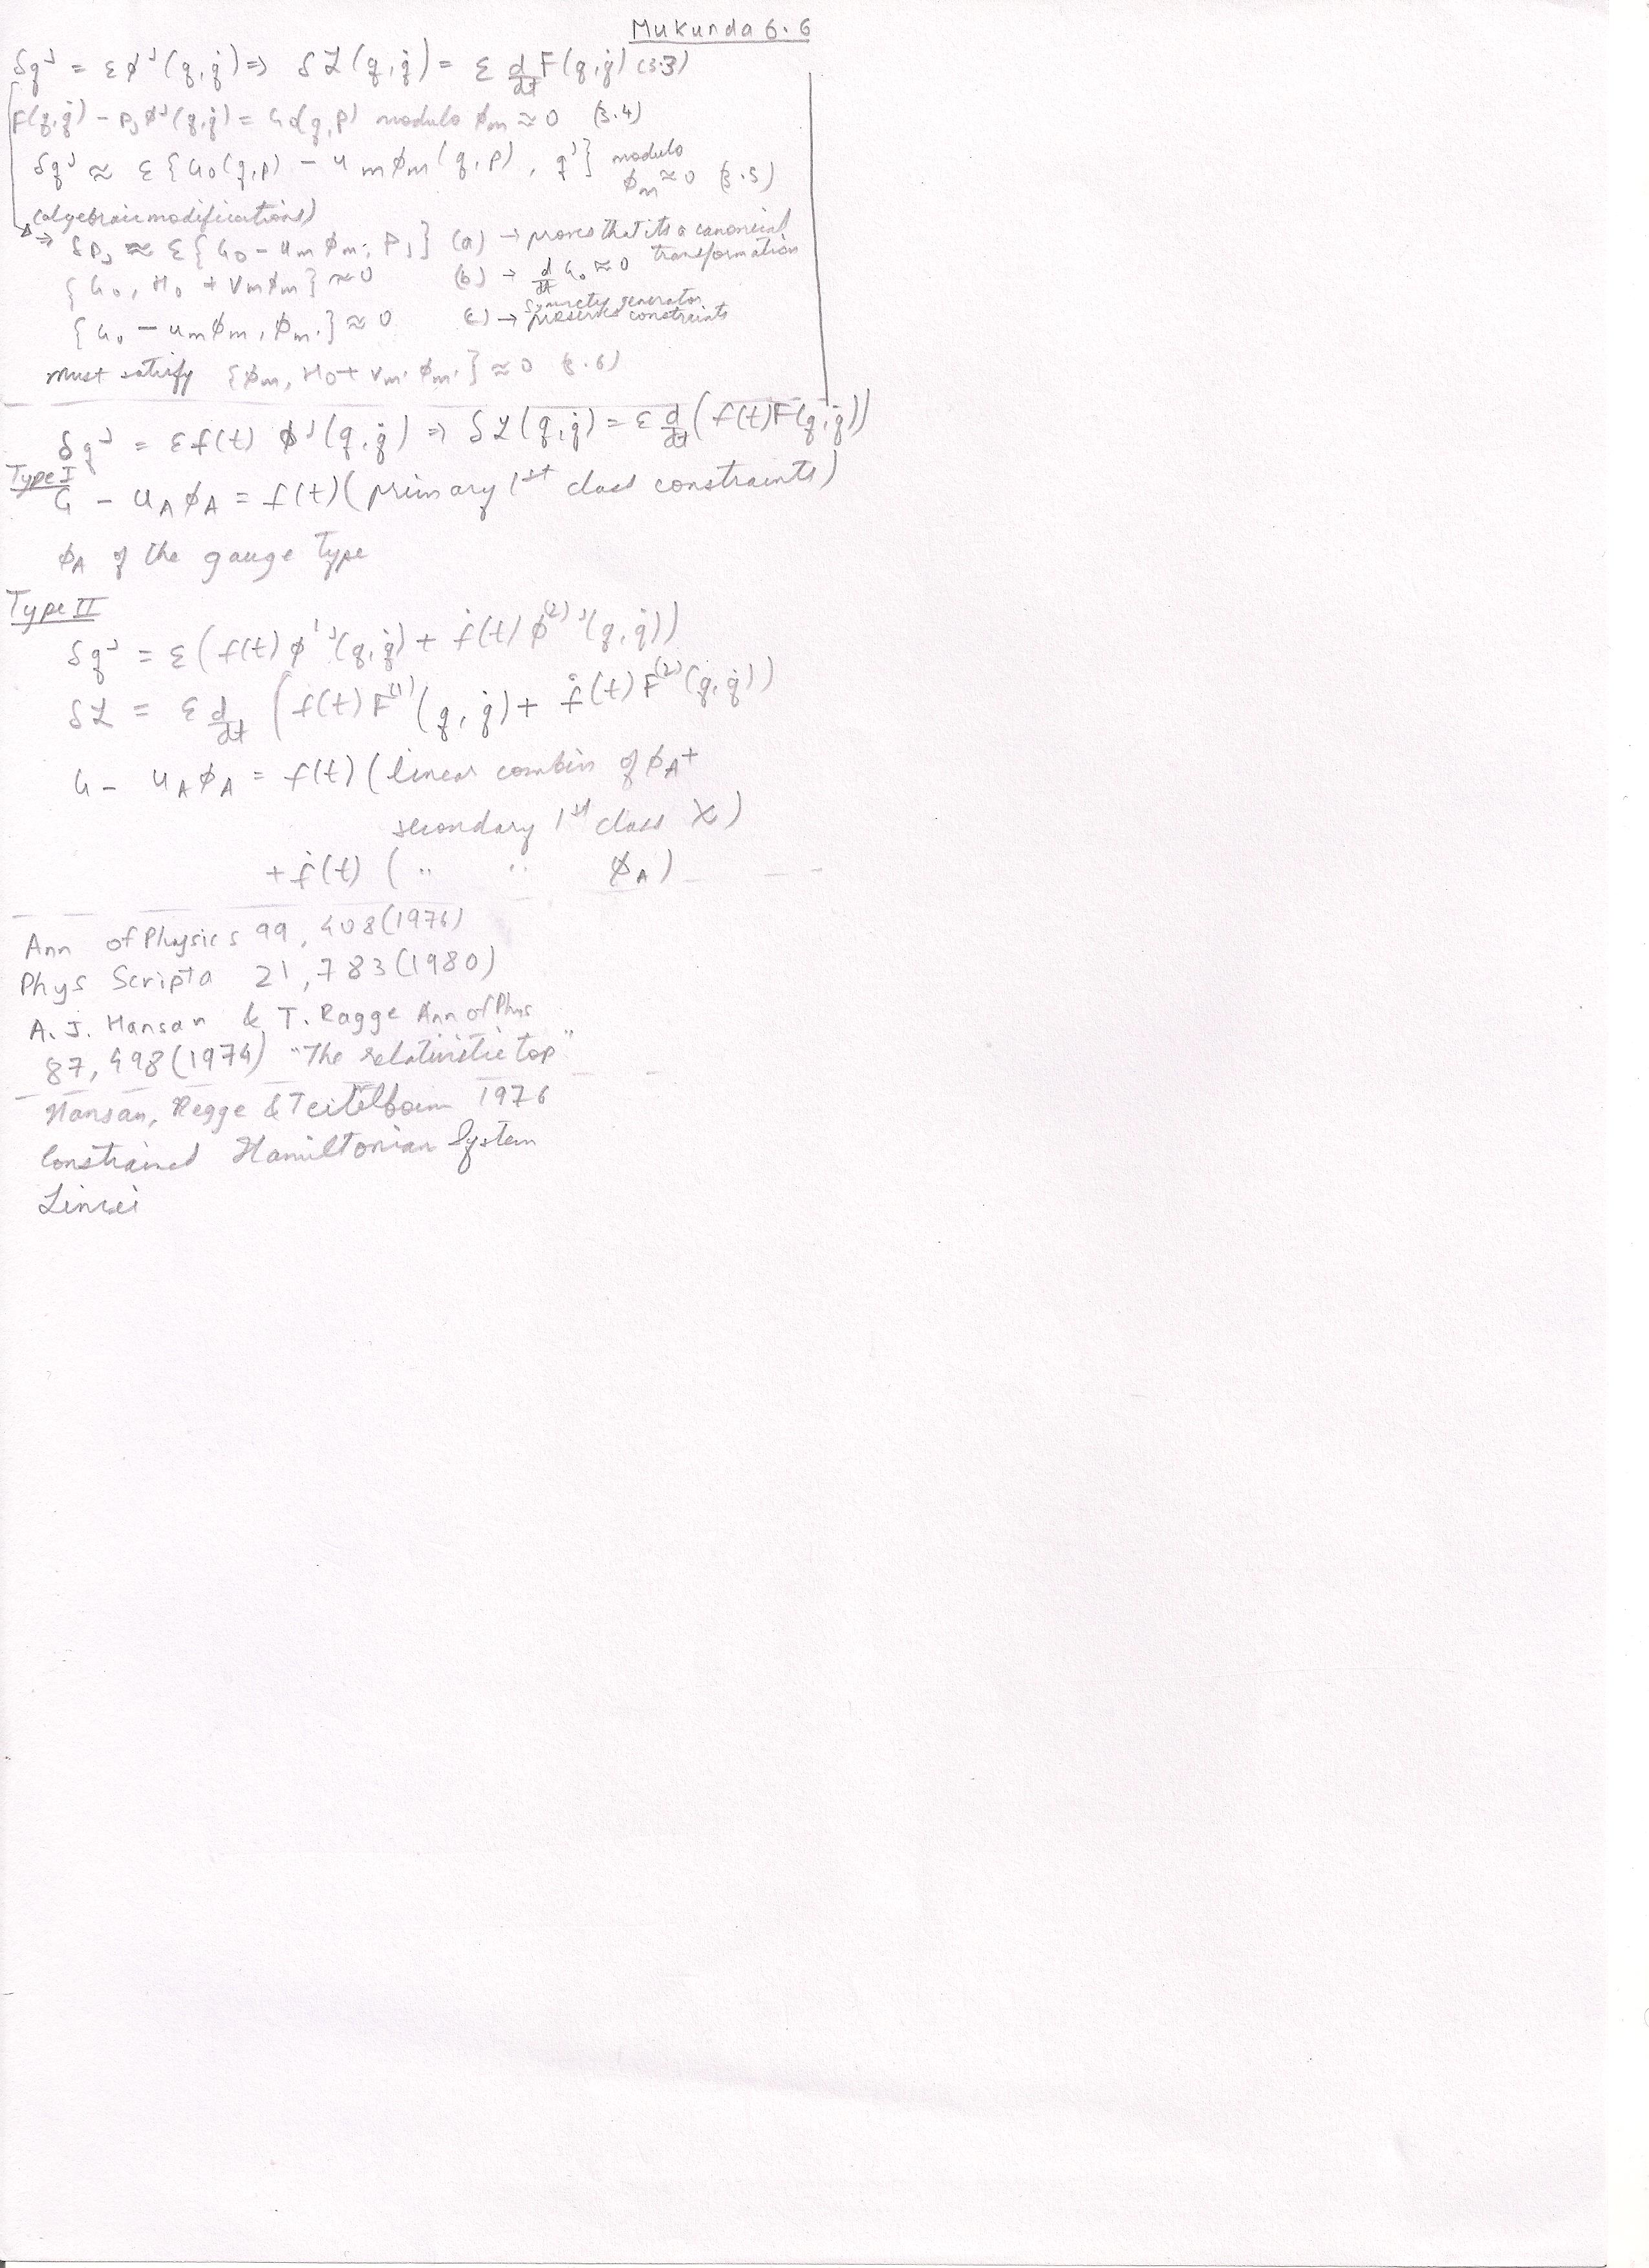 Mukunda 6.6
δq^j = εϕ^j(q,q̇) ⇒ δL(q,q̇) = ε d/dt F(q,q̇) (3.3)
F(q,q̇) - p_j ϕ^j(q,q̇) = G_0(q,p) modulo ϕ_m ≈ 0 (3.4)
δq^j ≈ ε{G_0(q,p) - u_m ϕ_m(q,p), q^j} modulo ϕ_m ≈ 0 (3.5)
(algebraic modifications)
⇒ δp_j ≈ ε{G_0 - u_m ϕ_m, p_j} (a) → proves that its a canonical transformation
{G_0, H_0 + v_m ϕ_m} ≈ 0 (b) → d/dt G_0 ≈ 0
{G_0 - u_m ϕ_m, ϕ_m'} ≈ 0 (c) → Symmetry generator preserves constraints
must satisfy {ϕ_m, H_0 + v_m' ϕ_m'} ≈ 0 (3.6)
δq^j = εf(t) ϕ^j(q,q̇) ⇒ δL(q,q̇) = ε d/dt (f(t)F(q,q̇))
Type I
G - u_A ϕ_A = f(t)(primary 1st class constraints)
ϕ_A of the gauge type
Type II
δq^j = ε(f(t) ϕ^(1)j(q,q̇) + ḟ(t) ϕ^(2)j(q,q̇))
δL = ε d/dt (f(t)F^(1)(q,q̇) + ḟ(t)F^(2)(q,q̇))
G - u_A ϕ_A = f(t)(linear combin of ϕ_A +
secondary 1st class χ)
+ ḟ(t) ( " " ϕ_A)
Ann of Physics 99, 408(1976)
Phys Scripta 21, 783(1980)
A. J. Hansan & T. Ragge Ann of Phys
87, 498(1974) "The relativistic top"
Hansan, Regge & Teitelboim 1976
Constrained Hamiltonian System
Lincei